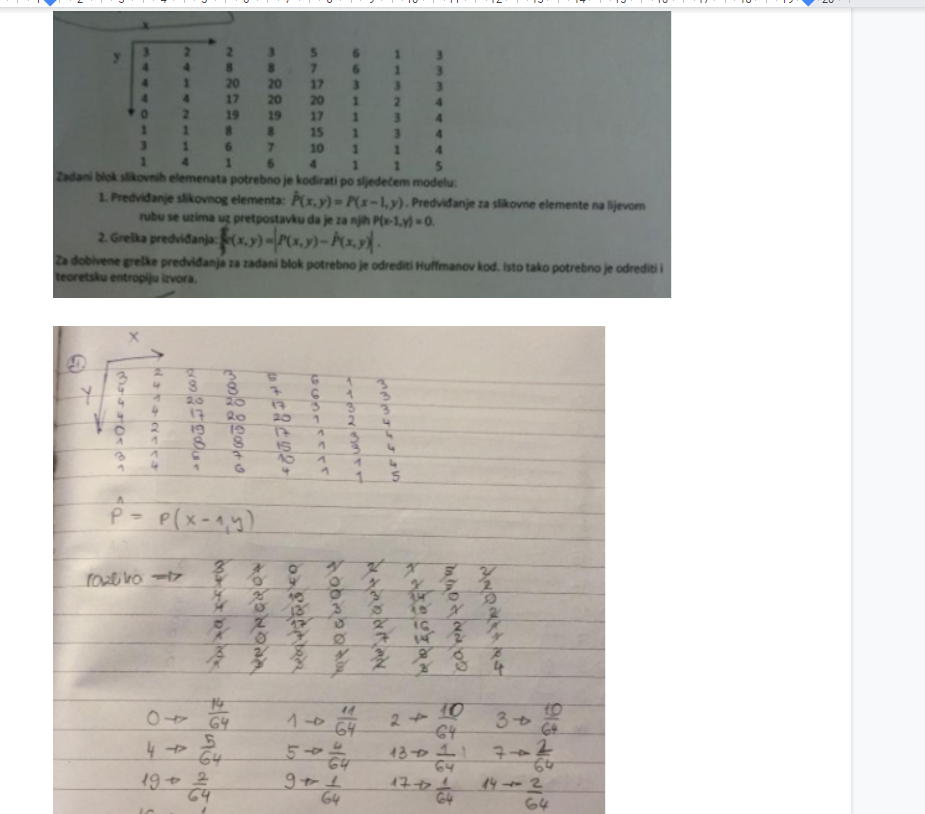 x
y 3 2 2 3 5 6 1 3
4 4 8 8 7 6 1 3
4 1 20 20 17 3 3 3
4 4 17 20 20 1 2 4
0 2 19 19 17 1 3 4
1 1 8 8 15 1 3 4
3 1 6 7 10 1 1 4
1 4 1 6 4 1 1 5
Zadani blok slikovnih elemenata potrebno je kodirati po sljedećem modelu:
1. Predviđanje slikovnog elementa: P̂(x,y) = P(x-1,y). Predviđanje za slikovne elemente na lijevom
rubu se uzima uz pretpostavku da je za njih P(x-1,y) = 0.
2. Greška predviđanja: e(x,y) = |P(x,y) - P̂(x,y)|.
Za dobivene greške predviđanja za zadani blok potrebno je odrediti Huffmanov kod. Isto tako potrebno je odrediti i
teoretsku entropiju izvora.
X
Y 3 2 2 3 5 6 1 3
4 4 8 8 7 6 1 3
4 1 20 20 17 3 3 3
4 4 17 20 20 1 2 4
0 2 19 19 17 1 3 4
1 1 8 8 15 1 3 4
3 1 6 7 10 1 1 4
1 4 1 6 4 1 1 5
P̂ = P(x-1,y)
razlika ⇒ 3 1 0 1 2 1 5 2
4 0 4 0 1 1 5 2
4 3 19 0 3 14 0 0
4 0 13 3 0 19 1 2
0 2 17 0 2 16 2 1
1 0 7 0 7 14 2 1
3 2 5 1 3 9 0 3
1 3 3 5 2 3 0 4
0 → 14/64 1 → 11/64 2 → 10/64 3 → 10/64
4 → 5/64 5 → 4/64 13 → 1/64 7 → 2/64
19 → 2/64 9 → 1/64 17 → 1/64 14 → 2/64